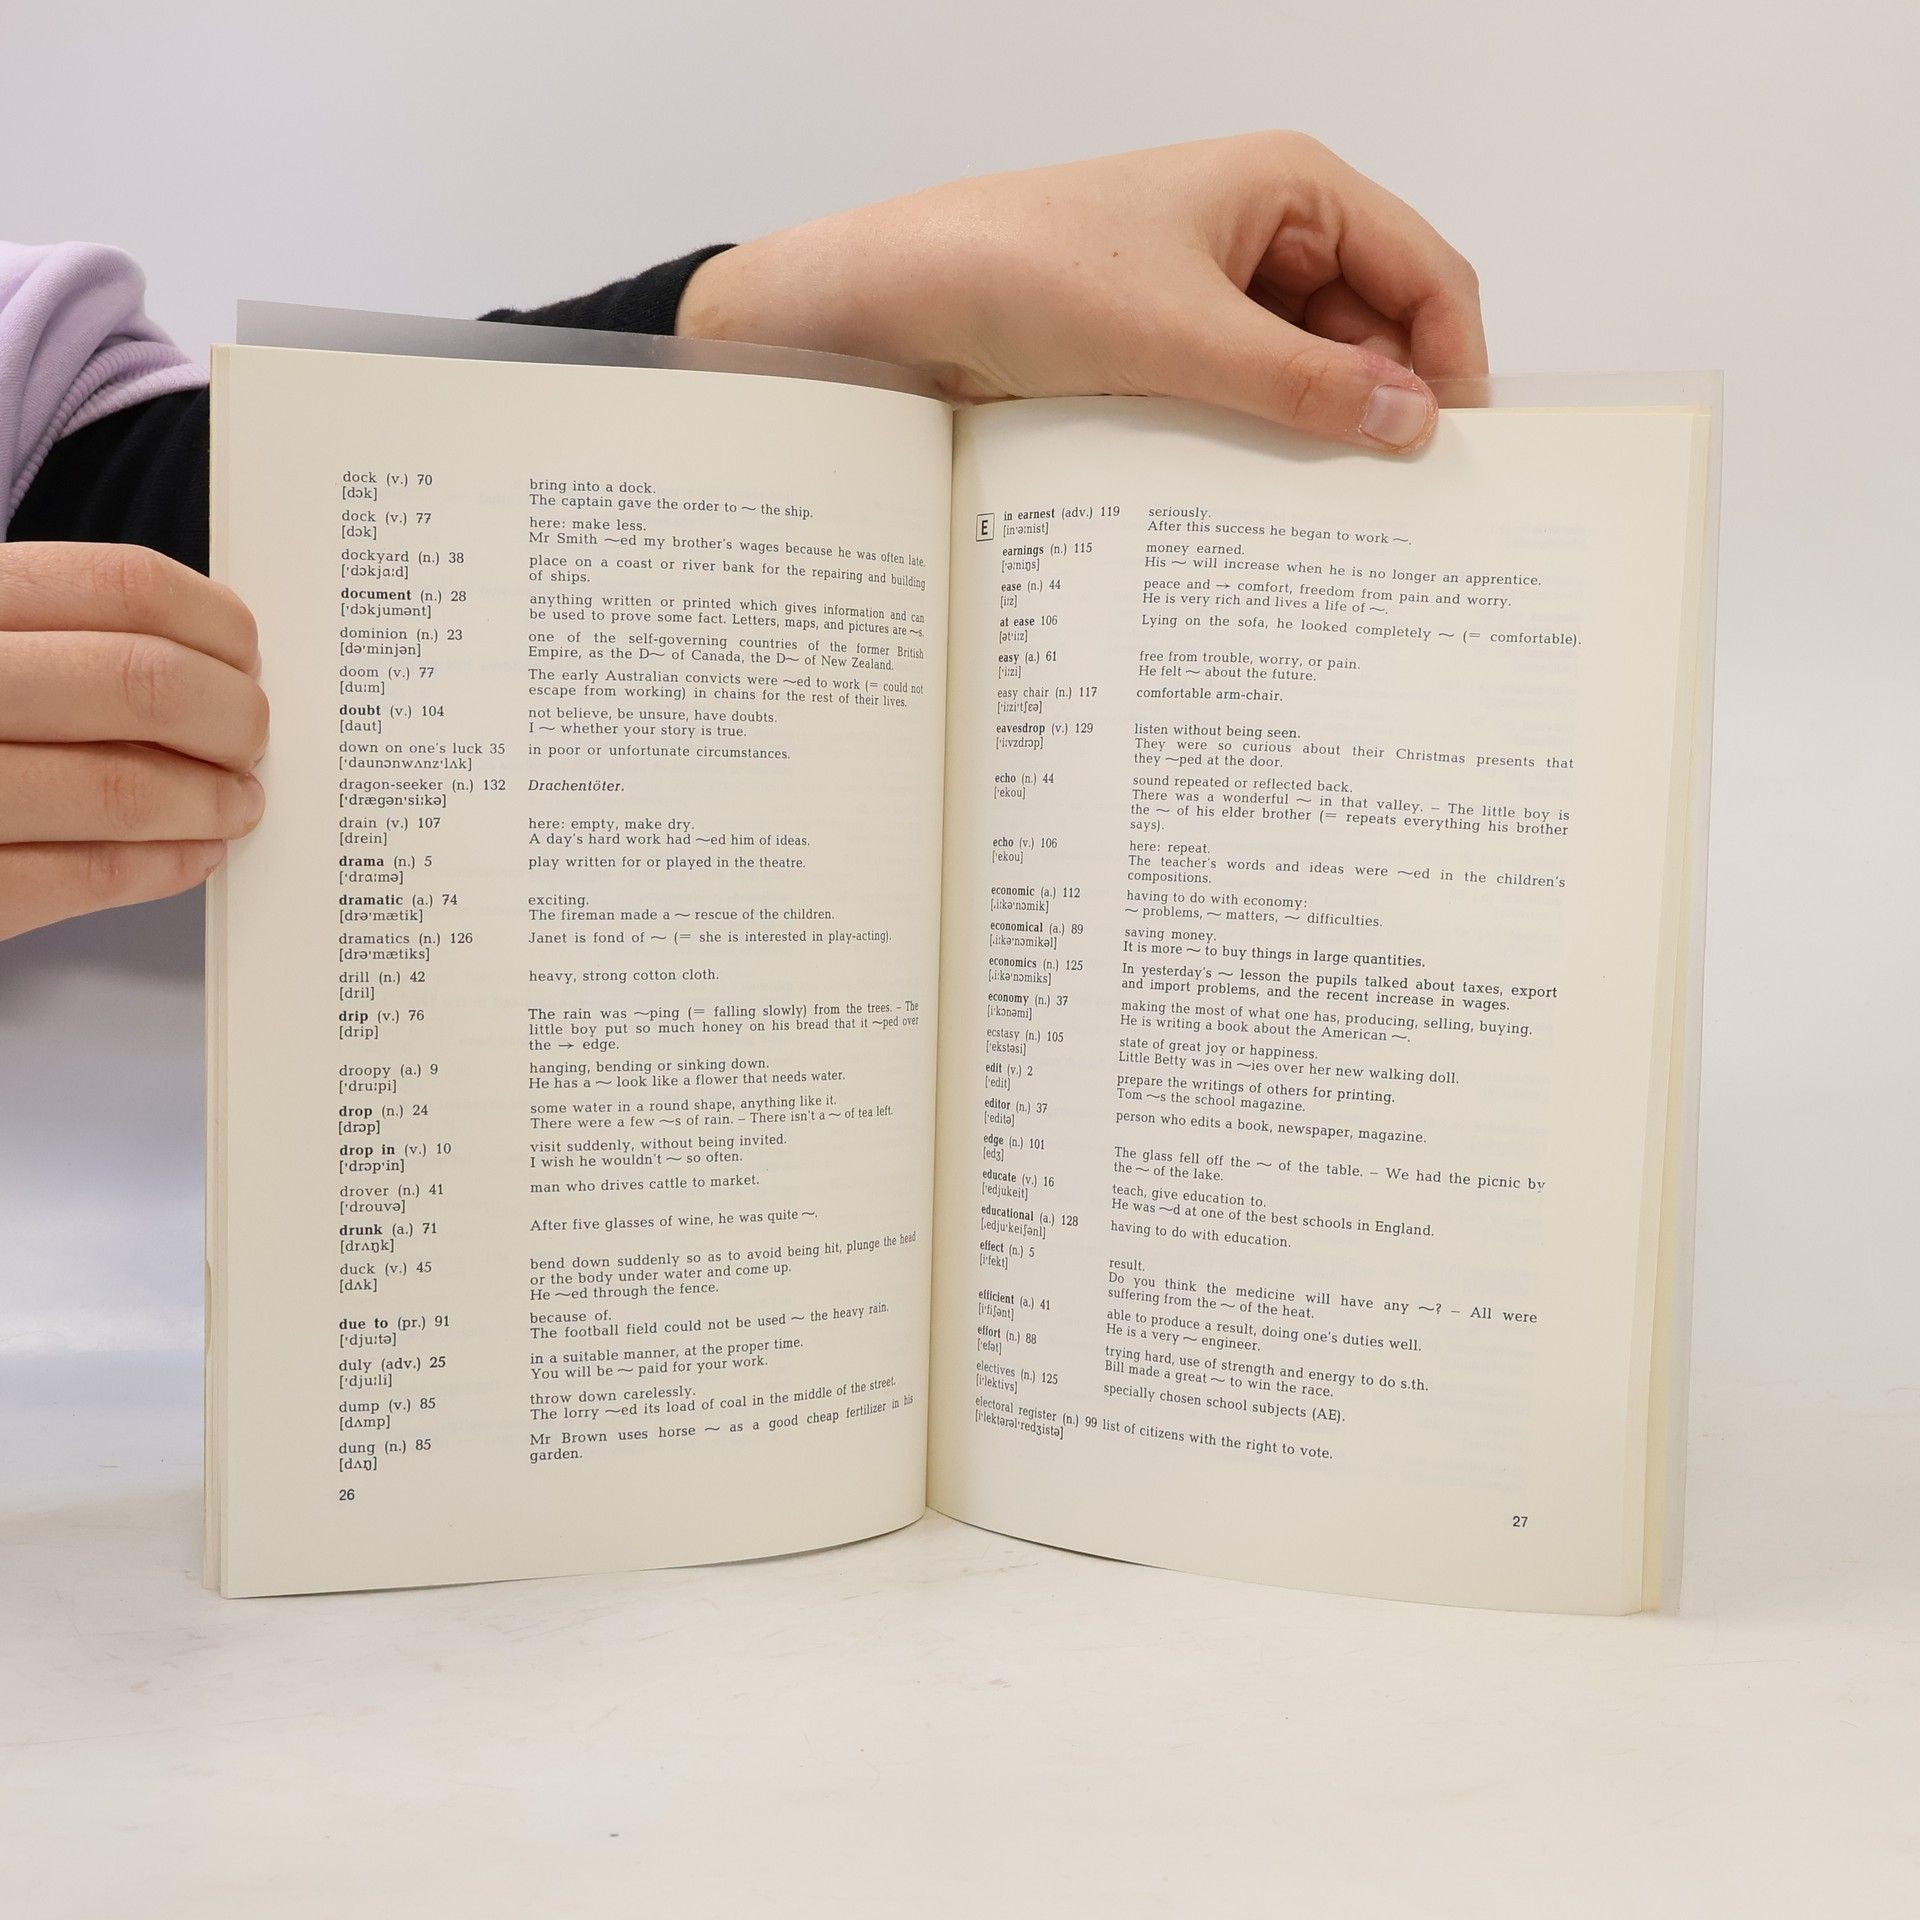 dock (v.) 70
[dɔk]
bring into a dock.
The captain gave the order to ~ the ship.
dock (v.) 77
[dɔk]
here: make less.
Mr Smith ~ed my brother's wages because he was often late.
dockyard (n.) 38
['dɔkjɑːd]
place on a coast or river bank for the repairing and building
of ships.
document (n.) 28
['dɔkjumənt]
anything written or printed which gives information and can
be used to prove some fact. Letters, maps, and pictures are ~s.
dominion (n.) 23
[də'minjən]
one of the self-governing countries of the former British
Empire, as the D~ of Canada, the D~ of New Zealand.
doom (v.) 77
[duːm]
The early Australian convicts were ~ed to work (= could not
escape from working) in chains for the rest of their lives.
doubt (v.) 104
[daut]
not believe, be unsure, have doubts.
I ~ whether your story is true.
down on one's luck 35
['daunɔnwʌnz'lʌk]
in poor or unfortunate circumstances.
dragon-seeker (n.) 132
['drægən'siːkə]
Drachentöter.
drain (v.) 107
[drein]
here: empty, make dry.
A day's hard work had ~ed him of ideas.
drama (n.) 5
['drɑːmə]
play written for or played in the theatre.
dramatic (a.) 74
[drə'mætik]
exciting.
The fireman made a ~ rescue of the children.
dramatics (n.) 126
[drə'mætiks]
Janet is fond of ~ (= she is interested in play-acting).
drill (n.) 42
[dril]
heavy, strong cotton cloth.
drip (v.) 76
[drip]
The rain was ~ping (= falling slowly) from the trees. – The
little boy put so much honey on his bread that it ~ped over
the → edge.
droopy (a.) 9
['druːpi]
hanging, bending or sinking down.
He has a ~ look like a flower that needs water.
drop (n.) 24
[drɔp]
some water in a round shape, anything like it.
There were a few ~s of rain. – There isn't a ~ of tea left.
drop in (v.) 10
['drɔp'in]
visit suddenly, without being invited.
I wish he wouldn't ~ so often.
drover (n.) 41
['drouvə]
man who drives cattle to market.
drunk (a.) 71
[drʌŋk]
After five glasses of wine, he was quite ~.
duck (v.) 45
[dʌk]
bend down suddenly so as to avoid being hit, plunge the head
or the body under water and come up.
He ~ed through the fence.
due to (pr.) 91
['djuːtə]
because of.
The football field could not be used ~ the heavy rain.
duly (adv.) 25
['djuːli]
in a suitable manner, at the proper time.
You will be ~ paid for your work.
dump (v.) 85
[dʌmp]
throw down carelessly.
The lorry ~ed its load of coal in the middle of the street.
dung (n.) 85
[dʌŋ]
Mr Brown uses horse ~ as a good cheap fertilizer in his
garden.
26
E
in earnest (adv.) 119
[in'əːnist]
seriously.
After this success he began to work ~.
earnings (n.) 115
['əːniŋs]
money earned.
His ~ will increase when he is no longer an apprentice.
ease (n.) 44
[iːz]
peace and → comfort, freedom from pain and worry.
He is very rich and lives a life of ~.
at ease 106
[ət'iːz]
Lying on the sofa, he looked completely ~ (= comfortable).
easy (a.) 61
['iːzi]
free from trouble, worry, or pain.
He felt ~ about the future.
easy chair (n.) 117
['iːzi'tʃɛə]
comfortable arm-chair.
eavesdrop (v.) 129
['iːvzdrɔp]
listen without being seen.
They were so curious about their Christmas presents that
they ~ped at the door.
echo (n.) 44
['ekou]
sound repeated or reflected back.
There was a wonderful ~ in that valley. – The little boy is
the ~ of his elder brother (= repeats everything his brother
says).
echo (v.) 106
['ekou]
here: repeat.
The teacher's words and ideas were ~ed in the children's
compositions.
economic (a.) 112
[ˌiːkə'nɔmik]
having to do with economy:
~ problems, ~ matters, ~ difficulties.
economical (a.) 89
[ˌiːkə'nɔmikəl]
saving money.
It is more ~ to buy things in large quantities.
economics (n.) 125
[ˌiːkə'nɔmiks]
In yesterday's ~ lesson the pupils talked about taxes, export
and import problems, and the recent increase in wages.
economy (n.) 37
[i'kɔnəmi]
making the most of what one has, producing, selling, buying.
He is writing a book about the American ~.
ecstasy (n.) 105
['ekstəsi]
state of great joy or happiness.
Little Betty was in ~ies over her new walking doll.
edit (v.) 2
['edit]
prepare the writings of others for printing.
Tom ~s the school magazine.
editor (n.) 37
['editə]
person who edits a book, newspaper, magazine.
edge (n.) 101
[edʒ]
The glass fell off the ~ of the table. – We had the picnic by
the ~ of the lake.
educate (v.) 16
['edjukeit]
teach, give education to.
He was ~d at one of the best schools in England.
educational (a.) 128
[ˌedju'keiʃənl]
having to do with education.
effect (n.) 5
[i'fekt]
result.
Do you think the medicine will have any ~? – All were
suffering from the ~ of the heat.
efficient (a.) 41
[i'fiʃənt]
able to produce a result, doing one's duties well.
He is a very ~ engineer.
effort (n.) 88
['efət]
trying hard, use of strength and energy to do s.th.
Bill made a great ~ to win the race.
electives (n.) 125
[i'lektivs]
specially chosen school subjects (AE).
electoral register (n.) 99 list of citizens with the right to vote.
[i'lektərəl'redʒistə]
27